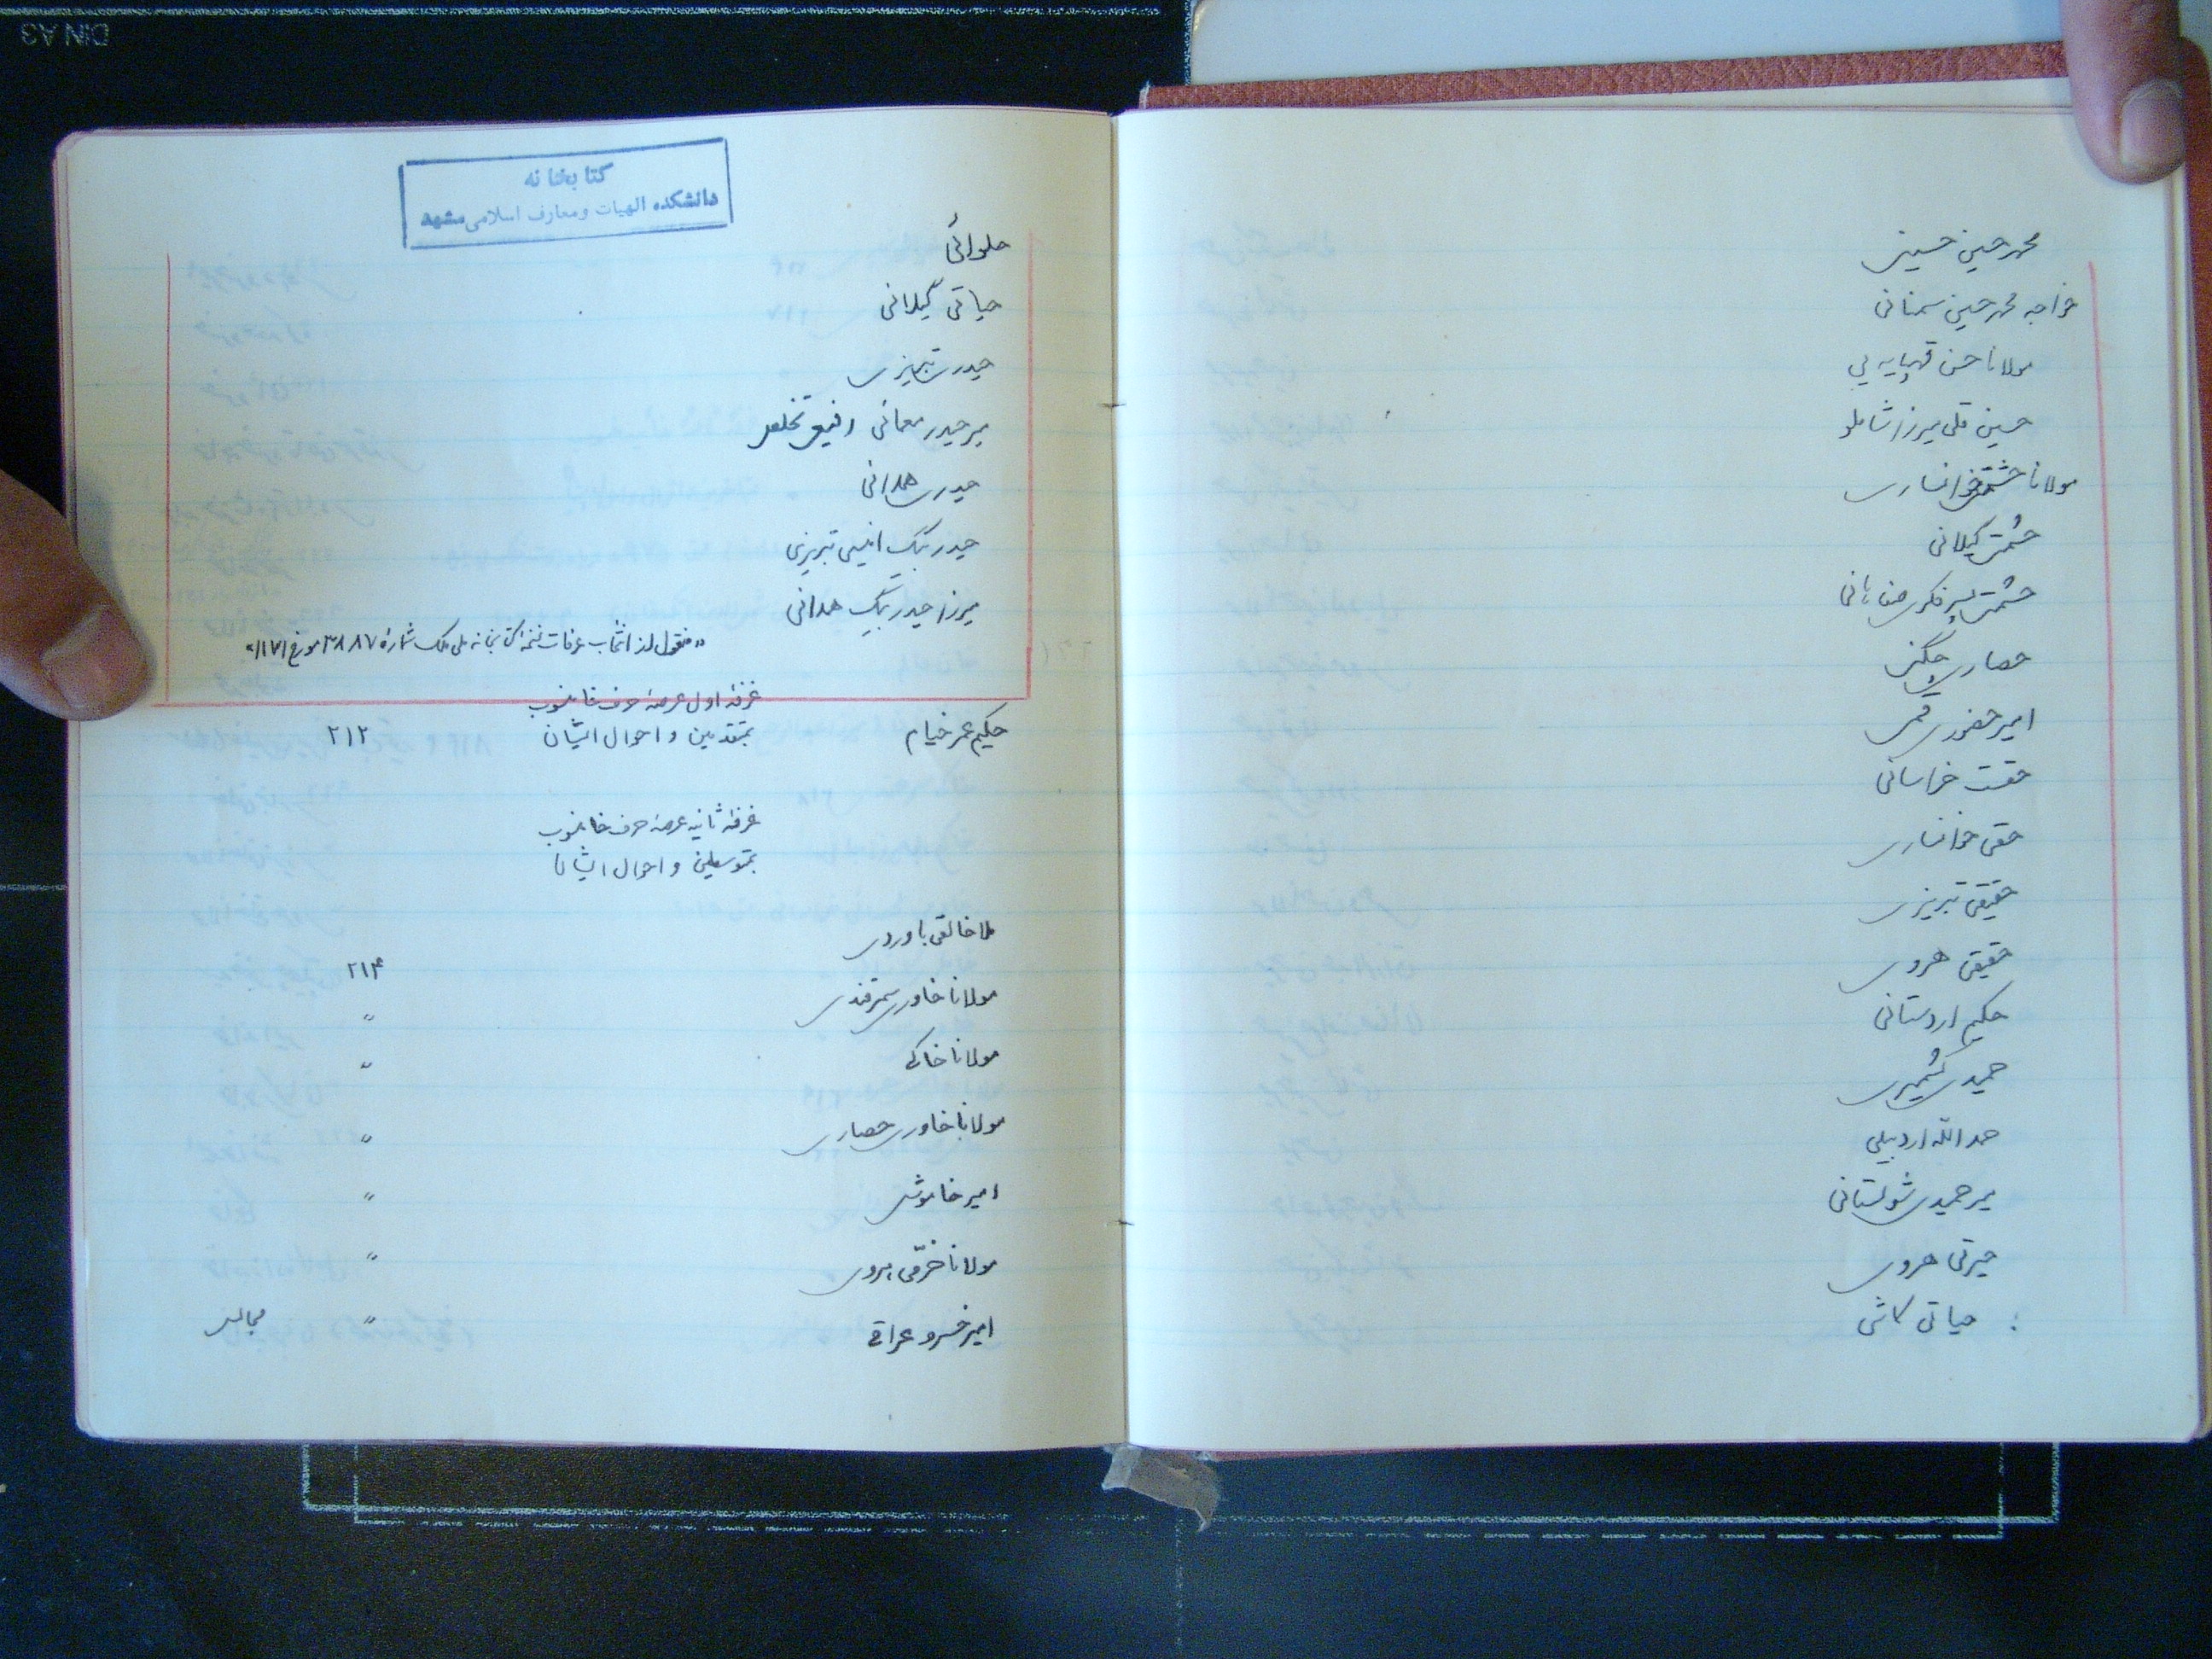 محمد حسین حسینی
خواجه محمد حسین سمنانی
مولانا حسن قهپایه یی
حسین قلی میرزا شاملو
مولانا حشمتی خوانساری
حشمت گیلانی
حشمت پسر فکری صفاهانی
حصاری چگنی
امیر حضوری قمی
خراسانی
حقی خوانساری
حقیقی تبریزی
حقیقی هروی
حکیم اردستانی
حمیدی کشمیری
حمد الله اردبیلی
میر حمیدی شولستانی
حیرتی هروی
: حیاتی کاشی
کتابخانه
دانشکده الهیات و معارف اسلامی مشهد
حلوائی
حیاتی گیلانی
حیدری تبریزی
میر حیدر معمائی رفیعی تخلص
حیدری همدانی
حیدر بیک انیسی تبریزی
میرزا حیدر بیگ همدانی
«منقول از انتخاب عرفات نسخه کتابخانه ملی ملک شماره ۳۸۸۷ مورخ ۱۱۷۱»
غرفه اول عرصه حرف خا منسوب
حکیم عمر خیام بمتقدمین و احوال ایشان ۲۱۲
غرفه ثانیه عرصه حرف خا منسوب
بمتوسطین و احوال ایشان
ملا خالقی باوردی ۲۱۴
مولانا خاوری سمرقندی "
مولانا خاکی "
مولانا خاوری حصاری "
امیر خاموشی "
مولانا خرّمی هروی "
امیر خسرو عراقی " مجالس